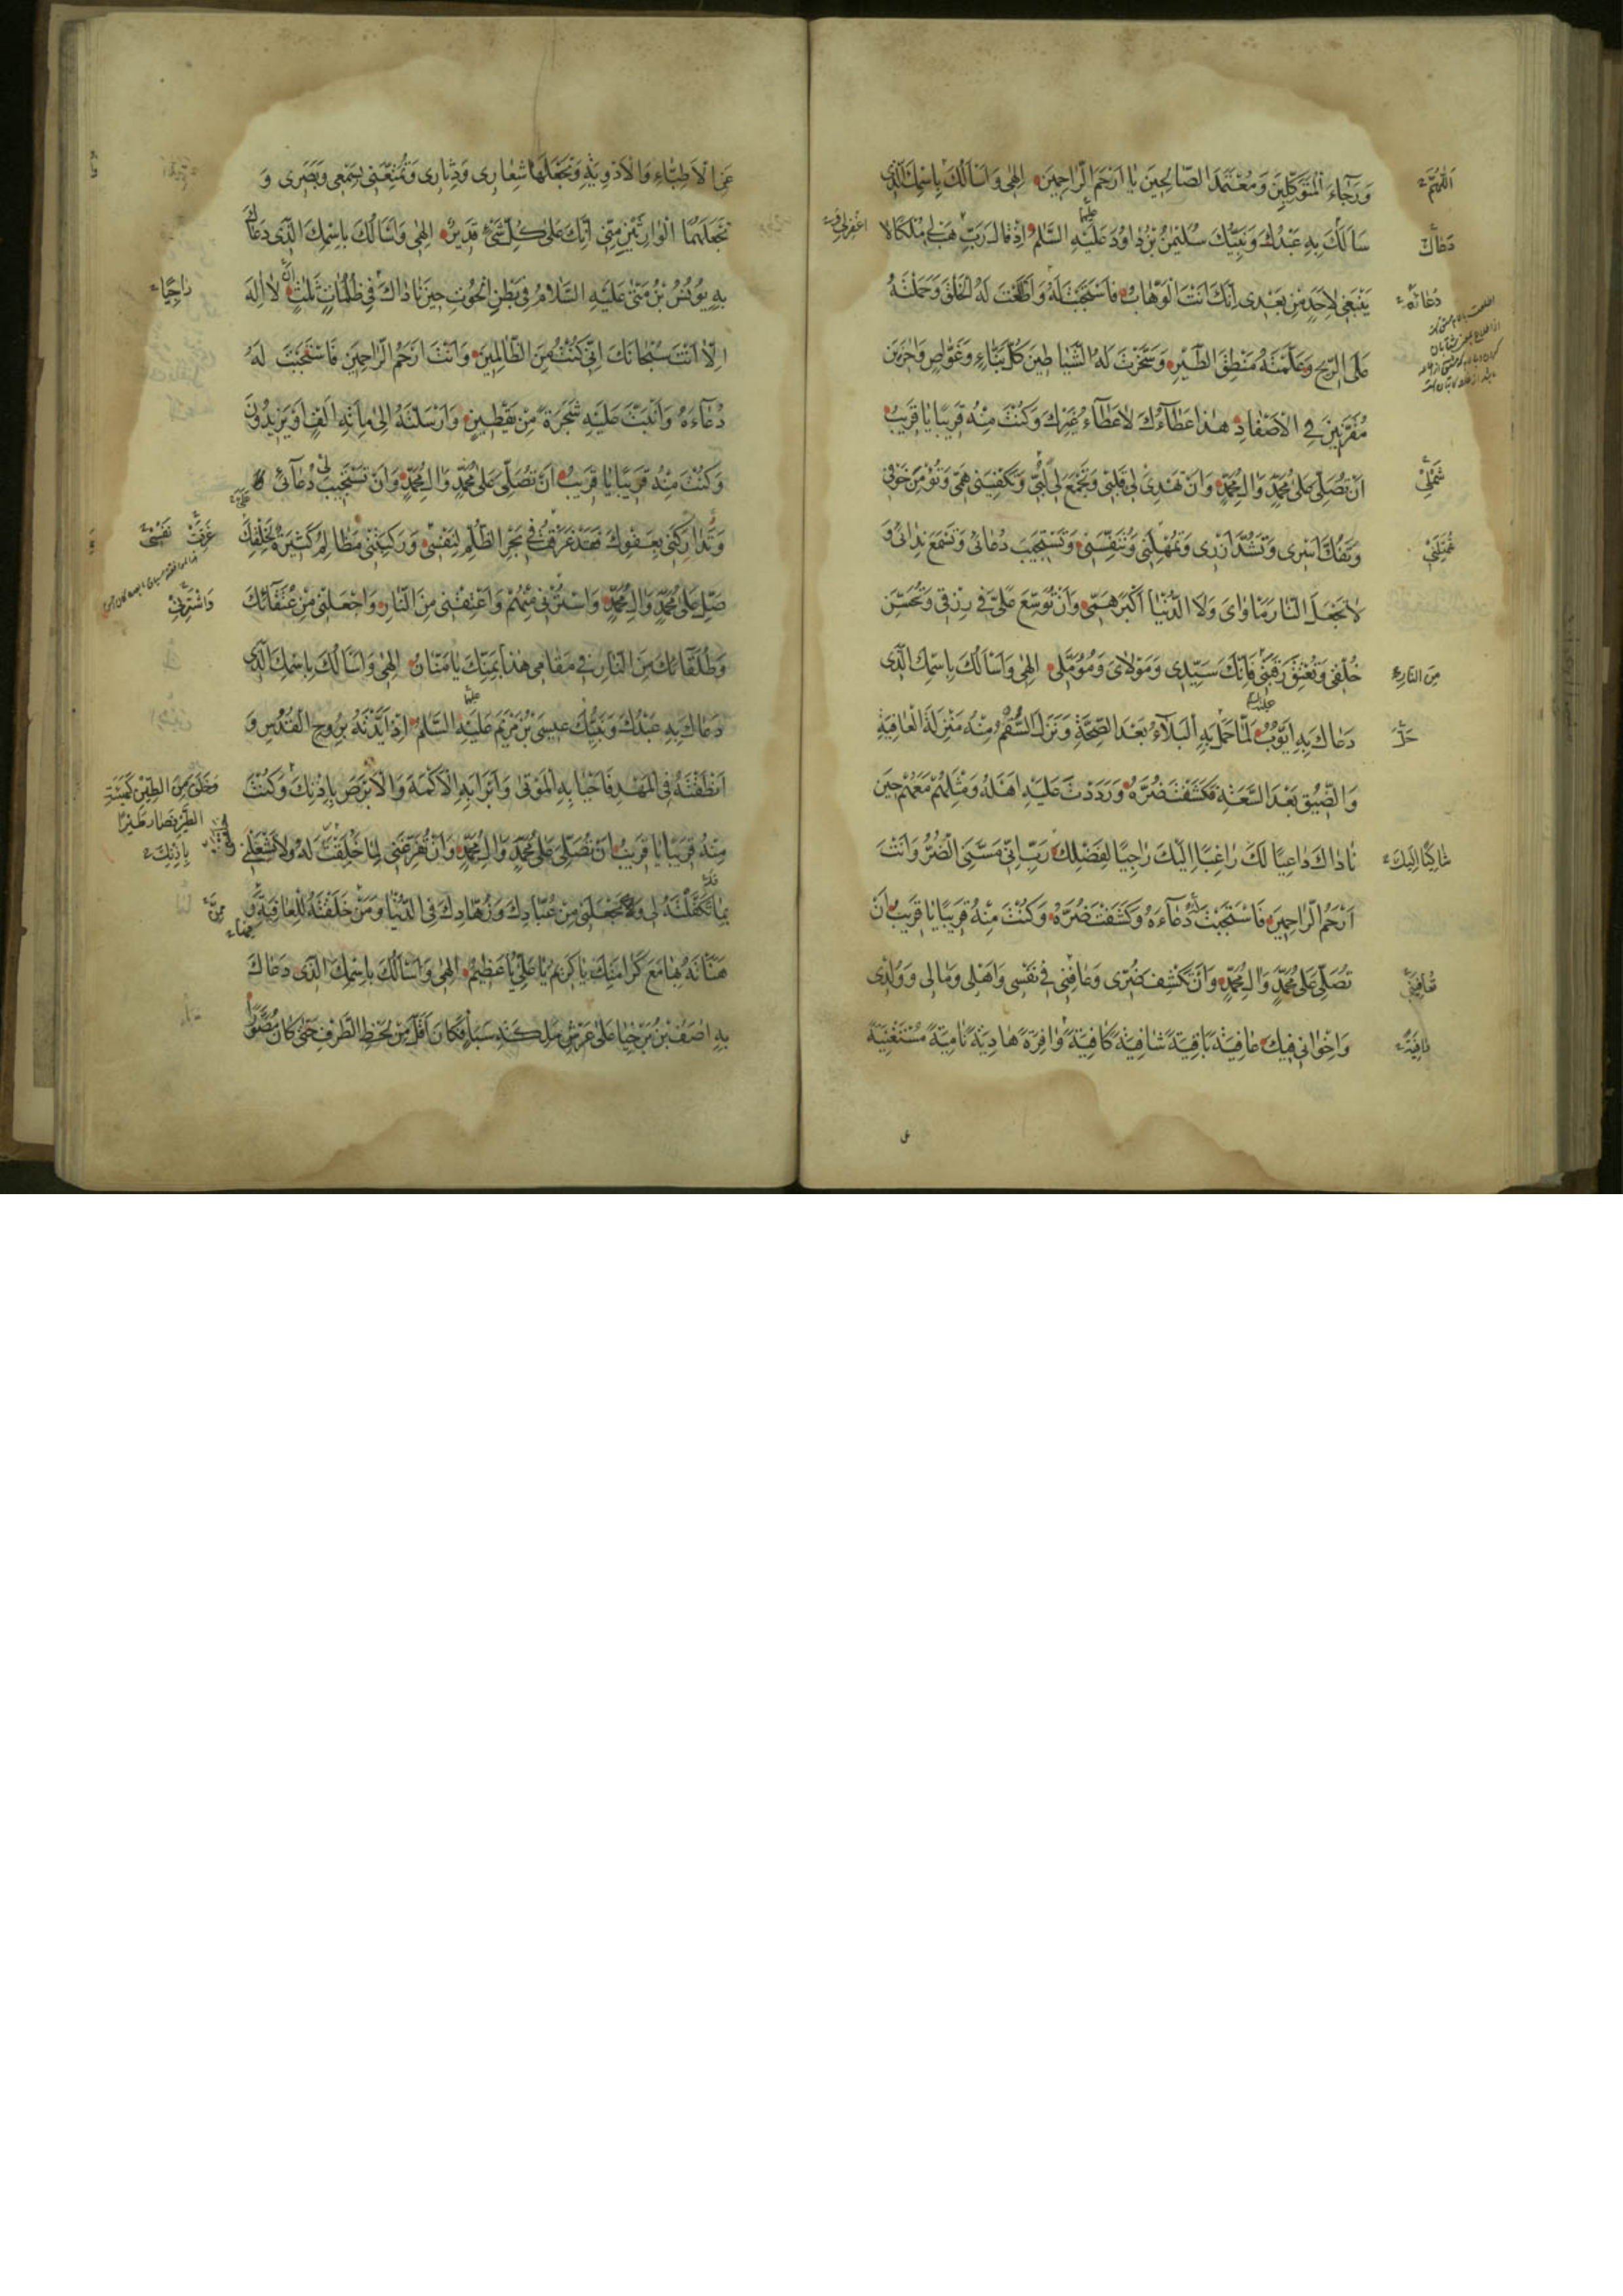 وَرَجَاءَ الْمُتَوَكِّلِينَ وَمُعْتَمَدَ الصَّالِحِينَ يَا اَرْحَمَ الرَّاحِمِينَ اِلٰهِى وَاَسْاَلُكَ بِاسْمِكَ الَّذِى
سَاَلَكَ بِهِ عَبْدُكَ وَنَبِيُّكَ سُلَيْمٰنُ بْنُ دَاوُدَ عَلَيْهِ السَّلٰمُ اِذْ قَالَ رَبِّ هَبْ لِى مُلْكًا لَا
يَنْبَغِى لِاَحَدٍ مِنْ بَعْدِى اِنَّكَ اَنْتَ الْوَهَّابُ فَاسْتَجَبْتَ لَهُ وَاَطَعْتَ لَهُ الْخَلْقَ وَحَمَلْتَهُ
عَلَى الرِّيحِ وَعَلَّمْتَهُ مَنْطِقَ الطَّيْرِ وَسَخَّرْتَ لَهُ الشَّيَاطِينَ كُلَّ بَنَّاءٍ وَغَوَّاصٍ وَاٰخَرِينَ
مُقَرَّنِينَ فِى الْاَصْفَادِ هٰذَا عَطَآءُكَ لَا عَطَآءُ غَيْرِكَ وَكُنْتَ مِنْهُ قَرِيبًا يَا قَرِيبُ
اَنْ تُصَلِّىَ عَلٰى مُحَمَّدٍ وَاٰلِ مُحَمَّدٍ وَاَنْ تَهْدِىَ لِى قَلْبِى وَتَجْمَعَ لِى لُبِّى وَتَكْفِيَنِى هَمِّى وَتُؤْمِنَ خَوْفِى
وَتَفُكَّ اَسْرِى وَتَشُدَّ اَزْرِى وَتُمْهِلَنِى وَتُنَفِّسَنِى وَتَسْتَجِيبَ دُعَائِى وَتَسْمَعَ نِدَائِى وَ
لَا تَجْعَلَ النَّارَ مَاْوَاىَ وَلَا الدُّنْيَا اَكْبَرَ هَمِّى وَاَنْ تُوَسِّعَ عَلَىَّ فِى رِزْقِى وَتُحَسِّنَ
خُلْقِى وَتُعْتِقَ رَقَبَتِى فَاِنَّكَ سَيِّدِى وَمَوْلَاىَ وَمُؤَمَّلِى اِلٰهِى وَاَسْاَلُكَ بِاسْمِكَ الَّذِى
دَعَاكَ بِهِ اَيُّوبُ لَمَّا حَلَّ بِهِ الْبَلَآءُ بَعْدَ الصِّحَّةِ وَنَزَلَ السُّقْمُ مِنْهُ مَنْزِلَةَ الْعَافِيَةِ
وَالضِّيقُ بَعْدَ السَّعَةِ فَكَشَفْتَ ضُرَّهُ وَرَدَدْتَ عَلَيْهِ اَهْلَهُ وَمِثْلَهُمْ مَعَهُمْ حِينَ
نَادَاكَ دَاعِيًا لَكَ رَاغِبًا اِلَيْكَ رَاجِيًا لِفَضْلِكَ رَبِّ اِنِّى مَسَّنِىَ الضُّرُّ وَاَنْتَ
اَرْحَمُ الرَّاحِمِينَ فَاسْتَجَبْتَ دُعَاءَهُ وَكَشَفْتَ ضُرَّهُ وَكُنْتَ مِنْهُ قَرِيبًا يَا قَرِيبُ اَنْ
تُصَلِّىَ عَلٰى مُحَمَّدٍ وَاٰلِ مُحَمَّدٍ وَاَنْ تَكْشِفَ ضُرِّى وَعَافِنِى فِى نَفْسِى وَاَهْلِى وَمَالِى وَوُلْدِى
وَاِخْوَانِى فِيكَ عَافِيَةً بَاقِيَةً شَافِيَةً كَافِيَةً وَافِرَةً هَادِيَةً نَامِيَةً مُسْتَغْنِيَةً
اَللّٰهُمَّ
دَعَاكَ
اغْفِرْلِى وَ
دُعَاءَهُ
شَمْلِى
مِنَ النَّارِ
حَلَّ
شَاكِيًا اِلَيْكَ
تُعَافِيَنِى
عَنِ الْاَطِبَّاءِ وَالْاَدْوِيَةِ وَتَجْعَلَهَا شِعَارِى وَدِثَارِى وَتُمَتِّعَنِى بِسَمْعِى وَبَصَرِى وَ
تَجْعَلَهُمَا الْوَارِثَيْنِ مِنِّى اِنَّكَ عَلٰى كُلِّ شَىْءٍ قَدِيرٌ اِلٰهِى وَاَسْاَلُكَ بِاسْمِكَ الَّذِى دَعَاكَ
بِهِ يُونُسُ بْنُ مَتّٰى عَلَيْهِ السَّلَامُ فِى بَطْنِ الْحُوتِ حِينَ نَادَاكَ فِى ظُلُمَاتٍ ثَلٰثٍ اَنْ لَا اِلٰهَ
اِلَّا اَنْتَ سُبْحَانَكَ اِنِّى كُنْتُ مِنَ الظَّالِمِينَ وَاَنْتَ اَرْحَمُ الرَّاحِمِينَ فَاسْتَجَبْتَ لَهُ
دُعَآءَهُ وَاَنْبَتَّ عَلَيْهِ شَجَرَةً مِنْ يَقْطِينٍ وَاَرْسَلْتَهُ اِلٰى مِائَةِ اَلْفٍ اَوْ يَزِيدُونَ
وَكُنْتَ مِنْهُ قَرِيبًا يَا قَرِيبُ اَنْ تُصَلِّىَ عَلٰى مُحَمَّدٍ وَاٰلِ مُحَمَّدٍ وَاَنْ تَسْتَجِيبَ دُعَآئِى
وَتُدَارِكَنِى بِعَفْوِكَ فَقَدْ غَرِقْتُ فِى بَحْرِ الظُّلْمِ لِنَفْسِى وَرَكِبَتْنِى مَظَالِمُ كَثِيرَةٌ لِخَلْقِكَ
صَلِّ عَلٰى مُحَمَّدٍ وَاٰلِ مُحَمَّدٍ وَاسْتُرْنِى مِنْهُمْ وَاَعْتِقْنِى مِنَ النَّارِ وَاجْعَلْنِى مِنْ عُتَقَائِكَ
وَطُلَقَائِكَ مِنَ النَّارِ فِى مَقَامِى هٰذَا بِمَنِّكَ يَا مَنَّانُ اِلٰهِى وَاَسْاَلُكَ بِاسْمِكَ الَّذِى
دَعَاكَ بِهِ عَبْدُكَ وَنَبِيُّكَ عِيسَى بْنُ مَرْيَمَ عَلَيْهِ السَّلٰمُ اِذْ اَيَّدْتَهُ بِرُوحِ الْقُدُسِ وَ
اَنْطَقْتَهُ فِى الْمَهْدِ فَاَحْيَا بِهِ الْمَوْتٰى وَاَبْرَاَ بِهِ الْاَكْمَهَ وَالْاَبْرَصَ بِاِذْنِكَ وَكُنْتَ
مِنْهُ قَرِيبًا يَا قَرِيبُ اَنْ تُصَلِّىَ عَلٰى مُحَمَّدٍ وَاٰلِ مُحَمَّدٍ وَاَنْ تُفَرِّغَنِى لِمَا خُلِقْتُ لَهُ وَلَا تَشْغَلْنِى
بِمَا تَكَفَّلْتَهُ لِى وَتَجْعَلَنِى مِنْ عُبَّادِكَ وَزُهَّادِكَ فِى الدُّنْيَا وَمَنْ خَلَقْتَهُ لِلْعَافِيَةِ وَ
هَنَّأْتَهُ بِهَا مَعَ كَرَامَتِكَ يَا كَرِيمُ يَا عَلِىُّ يَا عَظِيمُ اِلٰهِى وَاَسْاَلُكَ بِاسْمِكَ الَّذِى دَعَاكَ
بِهِ اٰصَفُ بْنُ بَرْخِيَا عَلٰى عَرْشِ مَلِكَةِ سَبَاٍ فَكَانَ اَقَلَّ مِنْ لَحْظِ الطَّرْفِ حَتّٰى كَانَ مُصَوَّرًا
رَاجِيًا
غَرِقْتُ نَفْسِى
وَاشْتَرِنِى
وَخَلَقَ مِنَ الطِّينِ كَهَيْئَةِ
الطَّيْرِ فَصَارَ طَيْرًا
بِاِذْنِكَ
مِمَّنْ